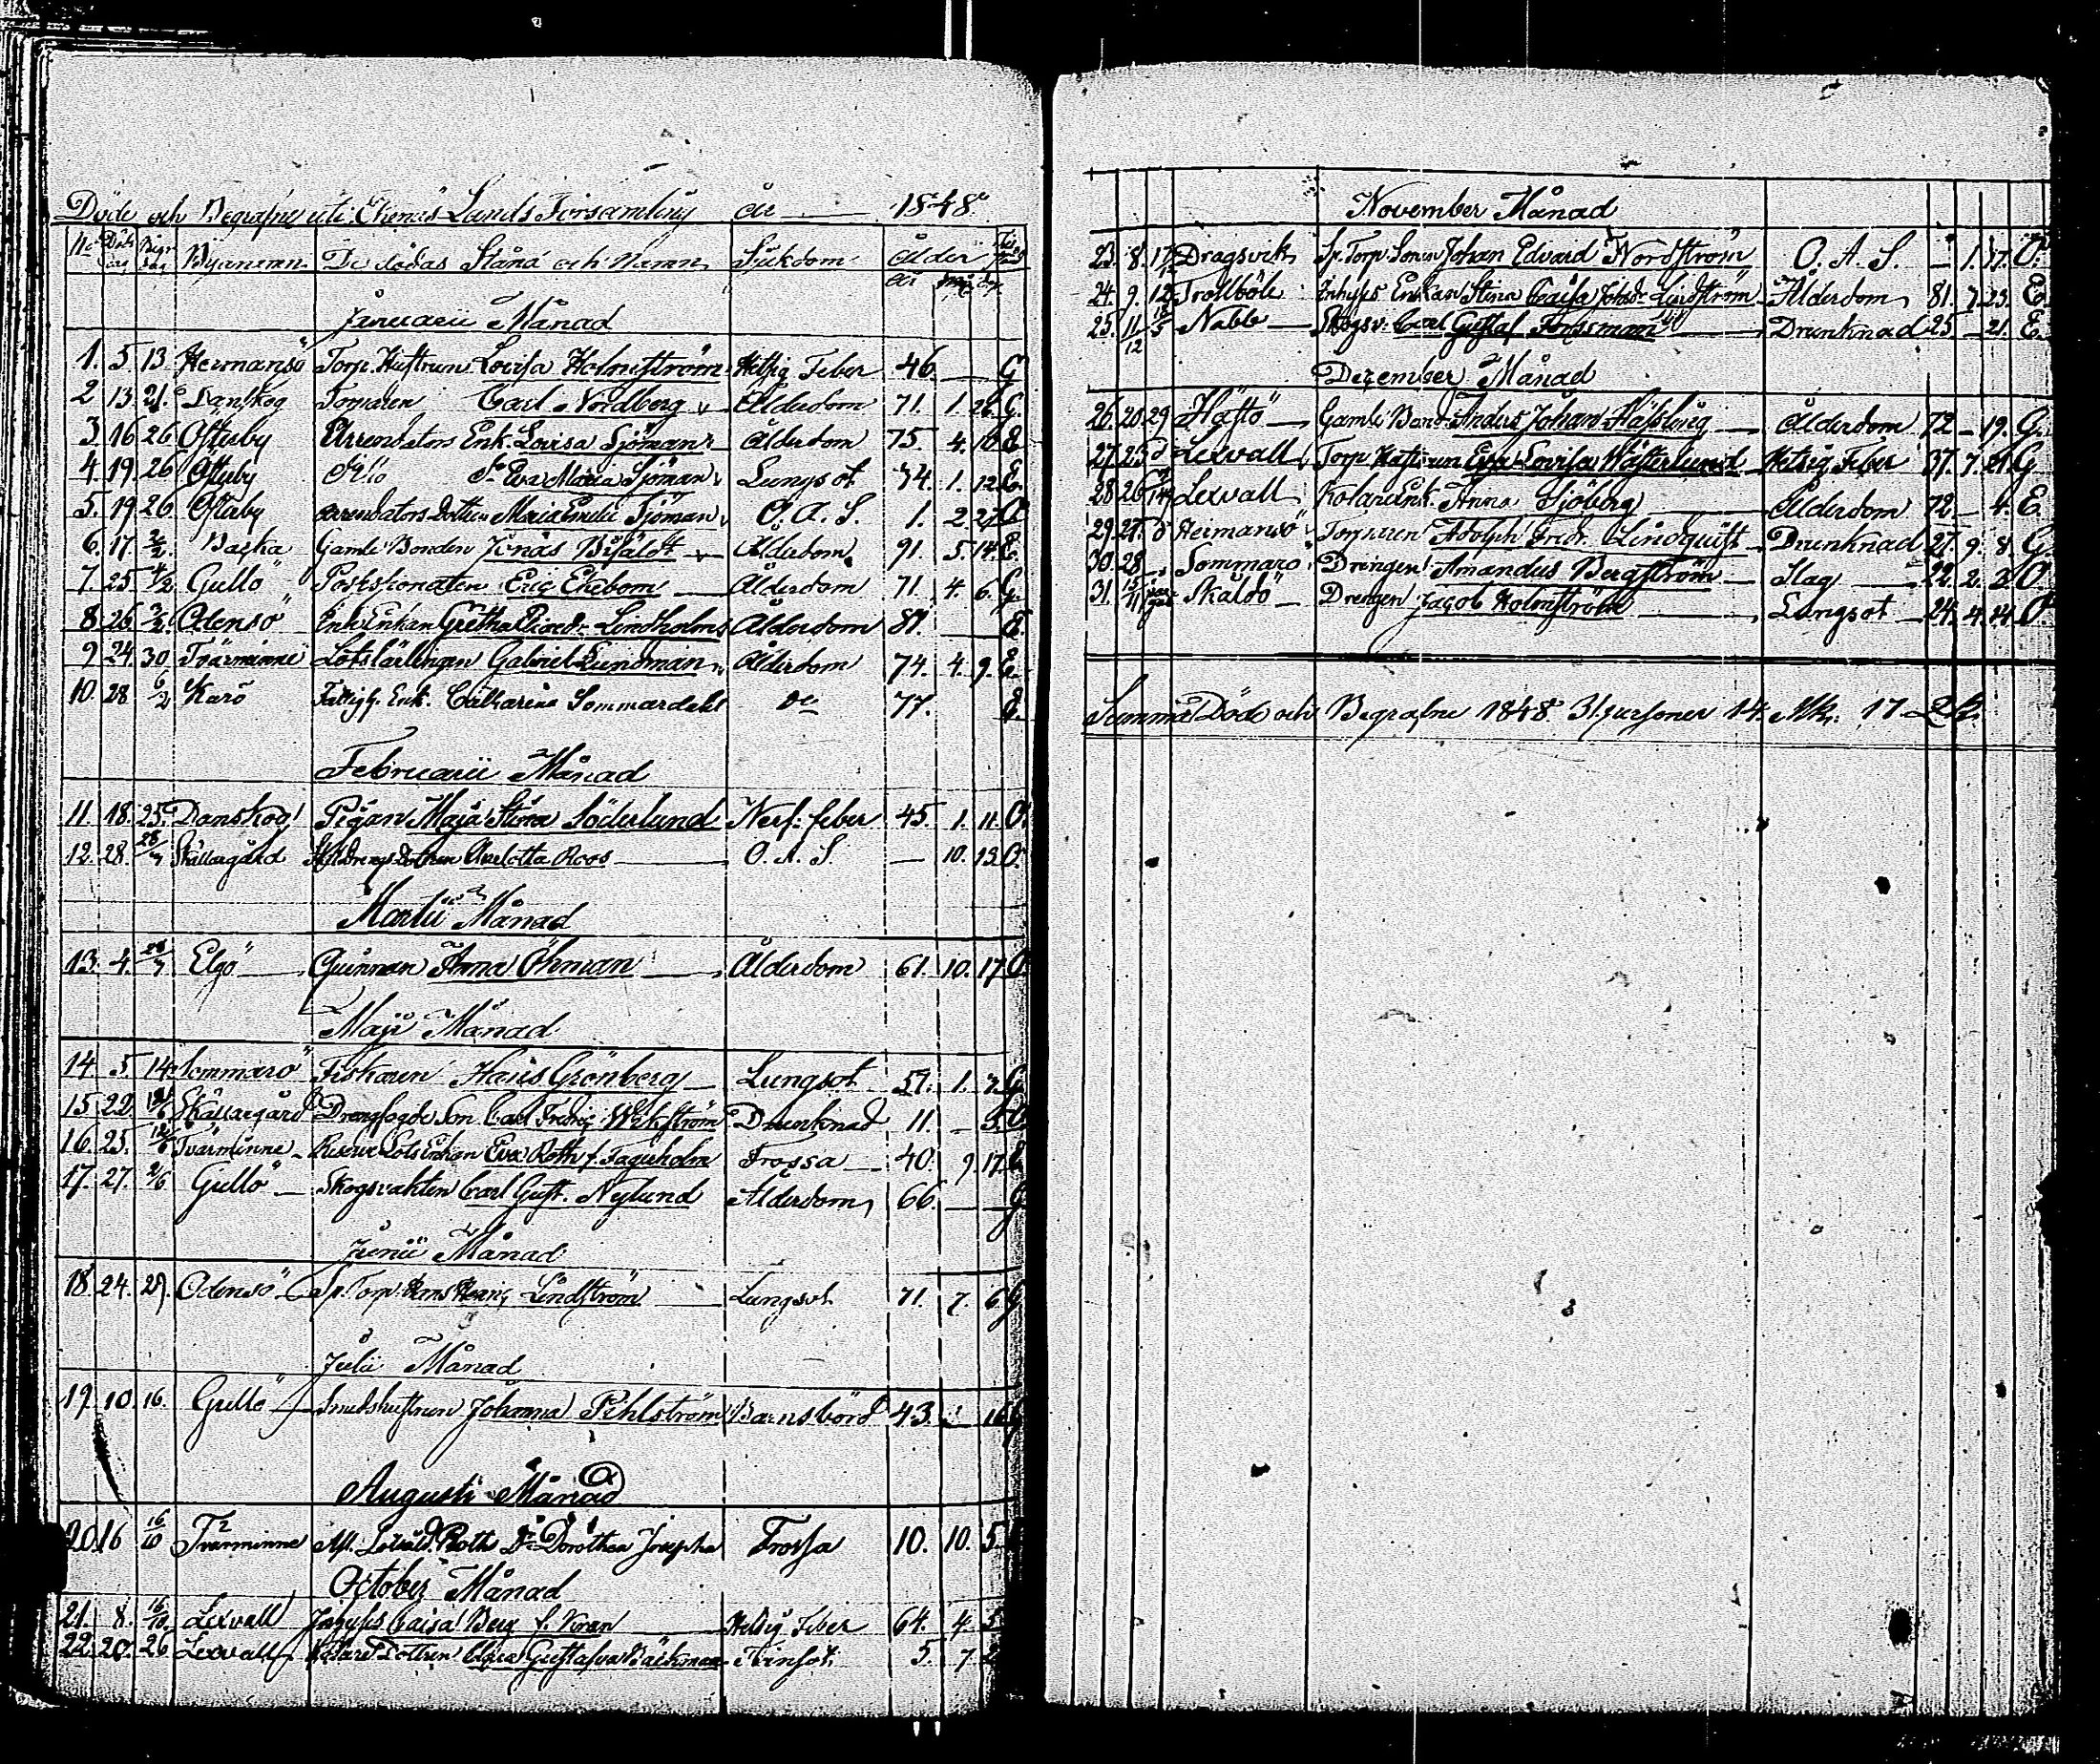 Döde och Begrafne uti Ekenäs Lands Församling år 1848.
No Döds dag Begr. dag Byanamn De dödas Stånd och Namn Sjukdom Ålder
år mån. dag.
Januarii Månad
1. 5. 13 Hermansö Torp. Hustrun Lovisa Holmström Hetsig Feber 46. G
2 13. 21. Danskog Torparen Carl Nordberg Ålderdom 71. 1. 26. G.
3. 16 26 Österby Arrendators Enk. Lovisa Sjöman Ålderdom 75. 4. 10 E
4 19. 26 Österby Eva Maria Sjöman Lungsot 74. 1. 12. E.
5. 19 26 Österby arrendators dottren Maria Emelie Sjöman O. A. S. 1. 2. 27 O
6. 17. 2/2. Baska Gamle Bonden Jonas Ålderdom. 91. 5. 14. E.
7. 25 4/2 Gullö Postiljonen Eric Ekebom Ålderdom 71. 4. 6. G.
8 26 3/2. Odensö Enk. Gretha Lindholm Ålderdom 81. E.
9 24. 30 Tvärminne Lotslärlingen Gabriel Lundman Ålderdom 74. 4. 9. E.
10. 28 6/2 Karö Fattigh. Enk. Catharina Sommardahl do 77. E.
Februarii Månad
11. 18. 25. Danskog Pigan Maja Stina Söderlund Nerf. feber 45. 1. 11. O.
12. 28. Skällargård Dottren Charlotta Roos O. A. S. — 10. 13. O.
Martii Månad
13. 4. Elgö Quinnan Anna Öhman Ålderdom 61. 10. 17. O.
Maji Månad
14 5 14. Sommarö Fiskaren Hans Grönberg Lungsot 51. 1. 7. G.
15 22. Skällargård Drengfogde Son Carl Fredric Wikström Drunknad 11. — 5. O
16. 25. Tvärminne Reserve Lots Enkan Eva Roth f. Fagerholm Frossa 40. 9. 17. E
17. 27. 2/6 Gullö Skogsvakten Carl Gust. Nylund Ålderdom 66. G
Junii Månad
18. 24. 29. Odensö Torp. Hans Henric Lindström Lungsot 71. 7. 6. G
Julii Månad
19 10. 16. Gullö Smedshustrun Johanna Pihlström Barnsbörd 43.
Augusti Månad
20. 16 16/10 Tvärminne Roth Dr. Dorothea Josepha Frossa 10. 10. 5.
October Månad
21. 8. 16/10. Lexvall Inhyses Caisa Berg f. Hetsig Feber 64. 4. 5
22. 20. 26 Lexvall Dottren Gustafva Bäckman 5. 7
November Månad
23. 8. 17/12 Dragsvik Sp. Torp. Sonen Johan Edvard Nordström O. A. S. — 1. 17. O.
24. 9. 12 Trollböle Inhyses Enkan Stina Caisa Lindström Ålderdom 81. 7. 23. E
25. 11/12 Nabb Skogsv. Carl Gustaf Forssman Drunknad 25. — 21. E.
December Månad
26. 20. 29 Hästö Gamle Bond. Anders Johan Ålderdom 72 — 19. G.
27. 23 do Lexvall Torp. Hustrun Eva Lovisa Wästerlund Hetsig Feber 37. 7. 21. G
28 26 Lexvall Kolare Enk. Anna Sjöberg Ålderdom 72 — 4. E.
29. 27. do Hermansö Torparen Adolph Fredr. Lindquist Drunknad 27. 9. 8. G.
30. 28 Sommarö Drängen Amandus Bergström Slag 22. 2. 2. O.
31. 15/11 Skåldö Drengen Jacob Holmström Lungsot 24. 4. 14. O.
Summa Döde och Begrafne 1848. 31. personer 14. Mk. 17 Qk.